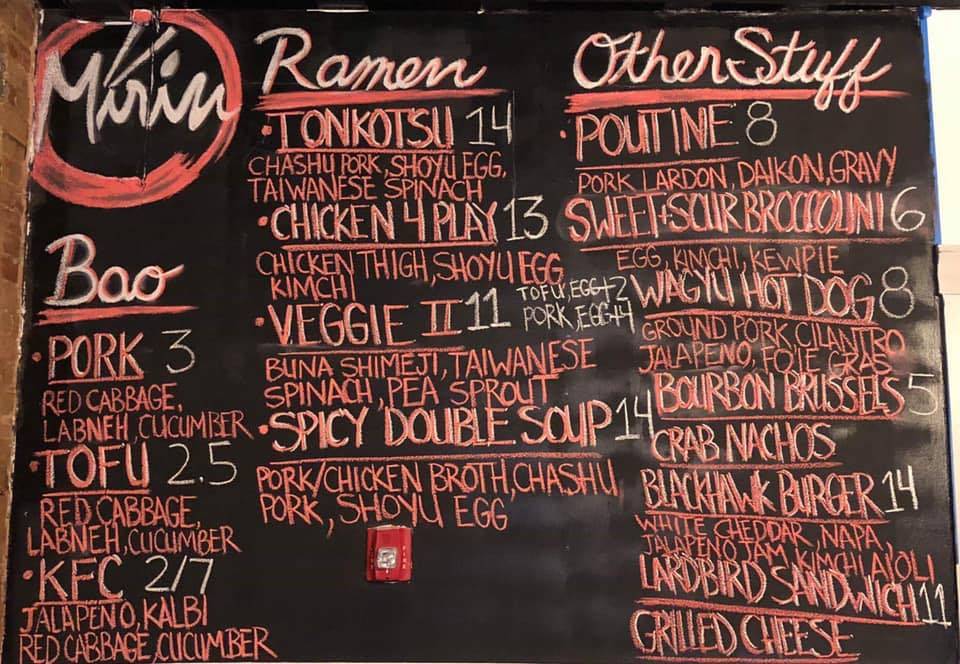 Mirin
Bao
• PORK 3
RED CABBAGE,
LABNEH, CUCUMBER
• TOFU 2.5
RED CABBAGE,
LABNEH, CUCUMBER
• KFC 2/7
JALAPENO, KALBI
RED CABBAGE, CUCUMBER
Ramen
• TONKOTSU 14
CHASHU PORK, SHOYU EGG,
TAIWANESE SPINACH
• CHICKEN 4 PLAY 13
CHICKEN THIGH, SHOYU EGG
KIMCHI
• VEGGIE II 11
TOFU, EGG+2
PORK, EGG+4
BUNA SHIMEJI, TAIWANESE
SPINACH, PEA SPROUT
• SPICY DOUBLE SOUP 14
PORK/CHICKEN BROTH, CHASHU
PORK, SHOYU EGG
Other Stuff
• POUTINE 8
PORK LARDON, DAIKON, GRAVY
SWEET+SOUR BROCCOLINI 6
EGG, KIMCHI, KEWPIE
WAGYU HOT DOG 8
GROUND PORK CILANTRO
JALAPENO, FOIE GRAS
BOURBON BRUSSELS 5
CRAB NACHOS
BLACKHAWK BURGER 14
WHITE CHEDDAR, NAPA,
JALAPENO JAM, KIMCHI AIOLI
LARDBIRD SANDWICH 11
GRILLED CHEESE